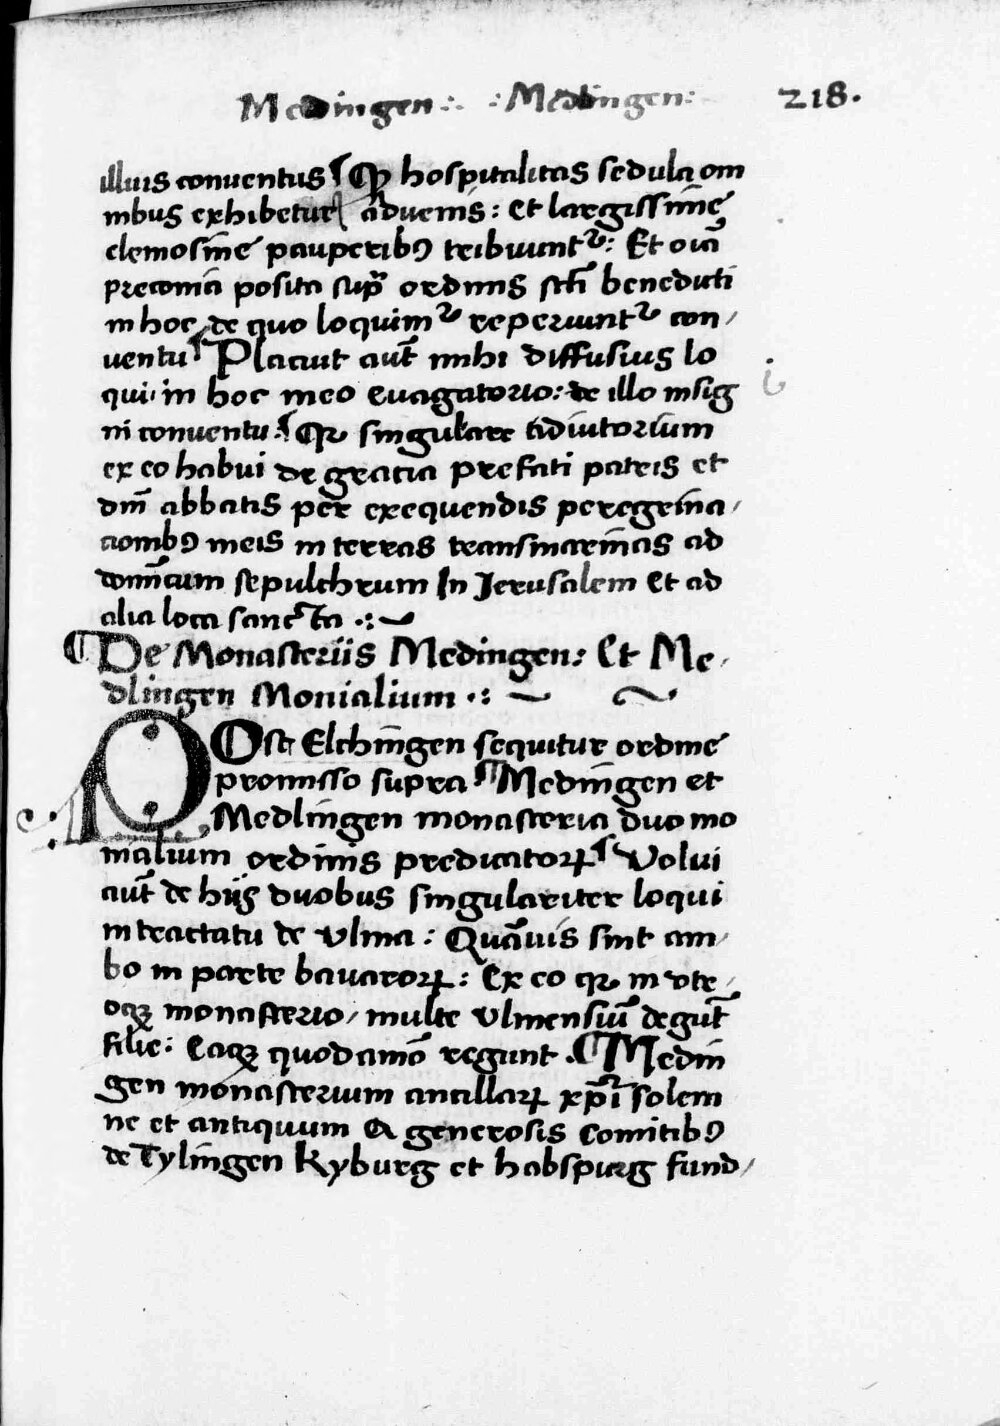 Medingen :· ·: Medlingen: 218.
illius conventus ¶ Qꝫ hospitalitas sedula om
nibus exhibetur advenis: Et largissime
elemosine pauperibꝯ tribuuntᷣ: Et oīa
preconia posita supͣ ordinis scti benedicti
in hoc de quo loquimᷣ reperiuntᷣ con/
ventu ¶ Placuit aut̄ mihi diffusius lo
qui in hoc meo evagatorio: de illo insig
ni conventu: ¶ Qꝛ singulare adiutorium
ex eo habui de gracia prefati patris et
dn̄i abbatis per exequendis peregrina/
cionibꝯ meis in terras transmarinas ad
domīcum sepulchrum In Jerusalem Et ad
alia loca sancta ·:~
¶ De Monasteriis Medingen: Et Me/
dlingen Monialium ·: ~ ~
POst Elchingen sequitur ordine
promisso supra ¶ Medingen et
Medlingen monasteria duo mo
nialium ordinis predicatoꝝ ¶ Volui
aut̄ de hijs duobus singulariter loqui
in tractatu de Ulma: Quāuis sint am/
bo in parte bavaroꝝ: Ex eo qꝛ in utr/
oqꝫ monasterio/ multe Ulmensiū degūt
filie: Eaqꝫ quodamō regunt. ¶ Medin
gen monasterium ancillaꝝ xp̄i solem
ne et antiquum A generosis Comitibꝯ
de Tylingen Kyburg et habspurg fund/